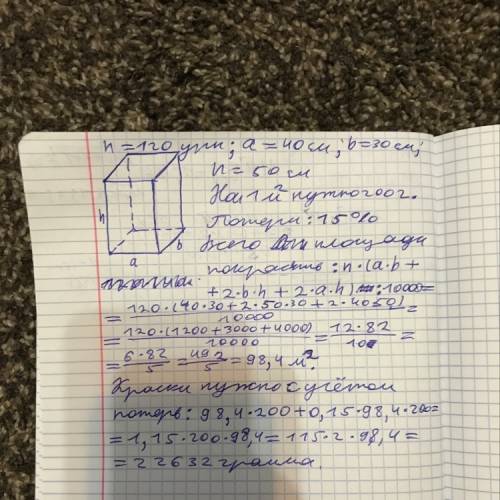 n = 120 упк; a = 40 см; b = 30 см;
h = 50 см
h
b
a
На 1 м² нужно 200 г.
Потери: 15%
Всего площади
покрасить: n·(a·b +
+ 2·b·h + 2·a·h) :10000=
= 120·(40·30+2·50·30+2·40·50)/10000 =
= 120·(1200+3000+4000)/10000 = 12·82/10 =
= 6·82/5 = 492/5 = 98,4 м².
Краски нужно с учётом
потерь: 98,4·200+0,15·98,4·200=
= 1,15·200·98,4 = 115·2·98,4 =
= 22632 грамма.